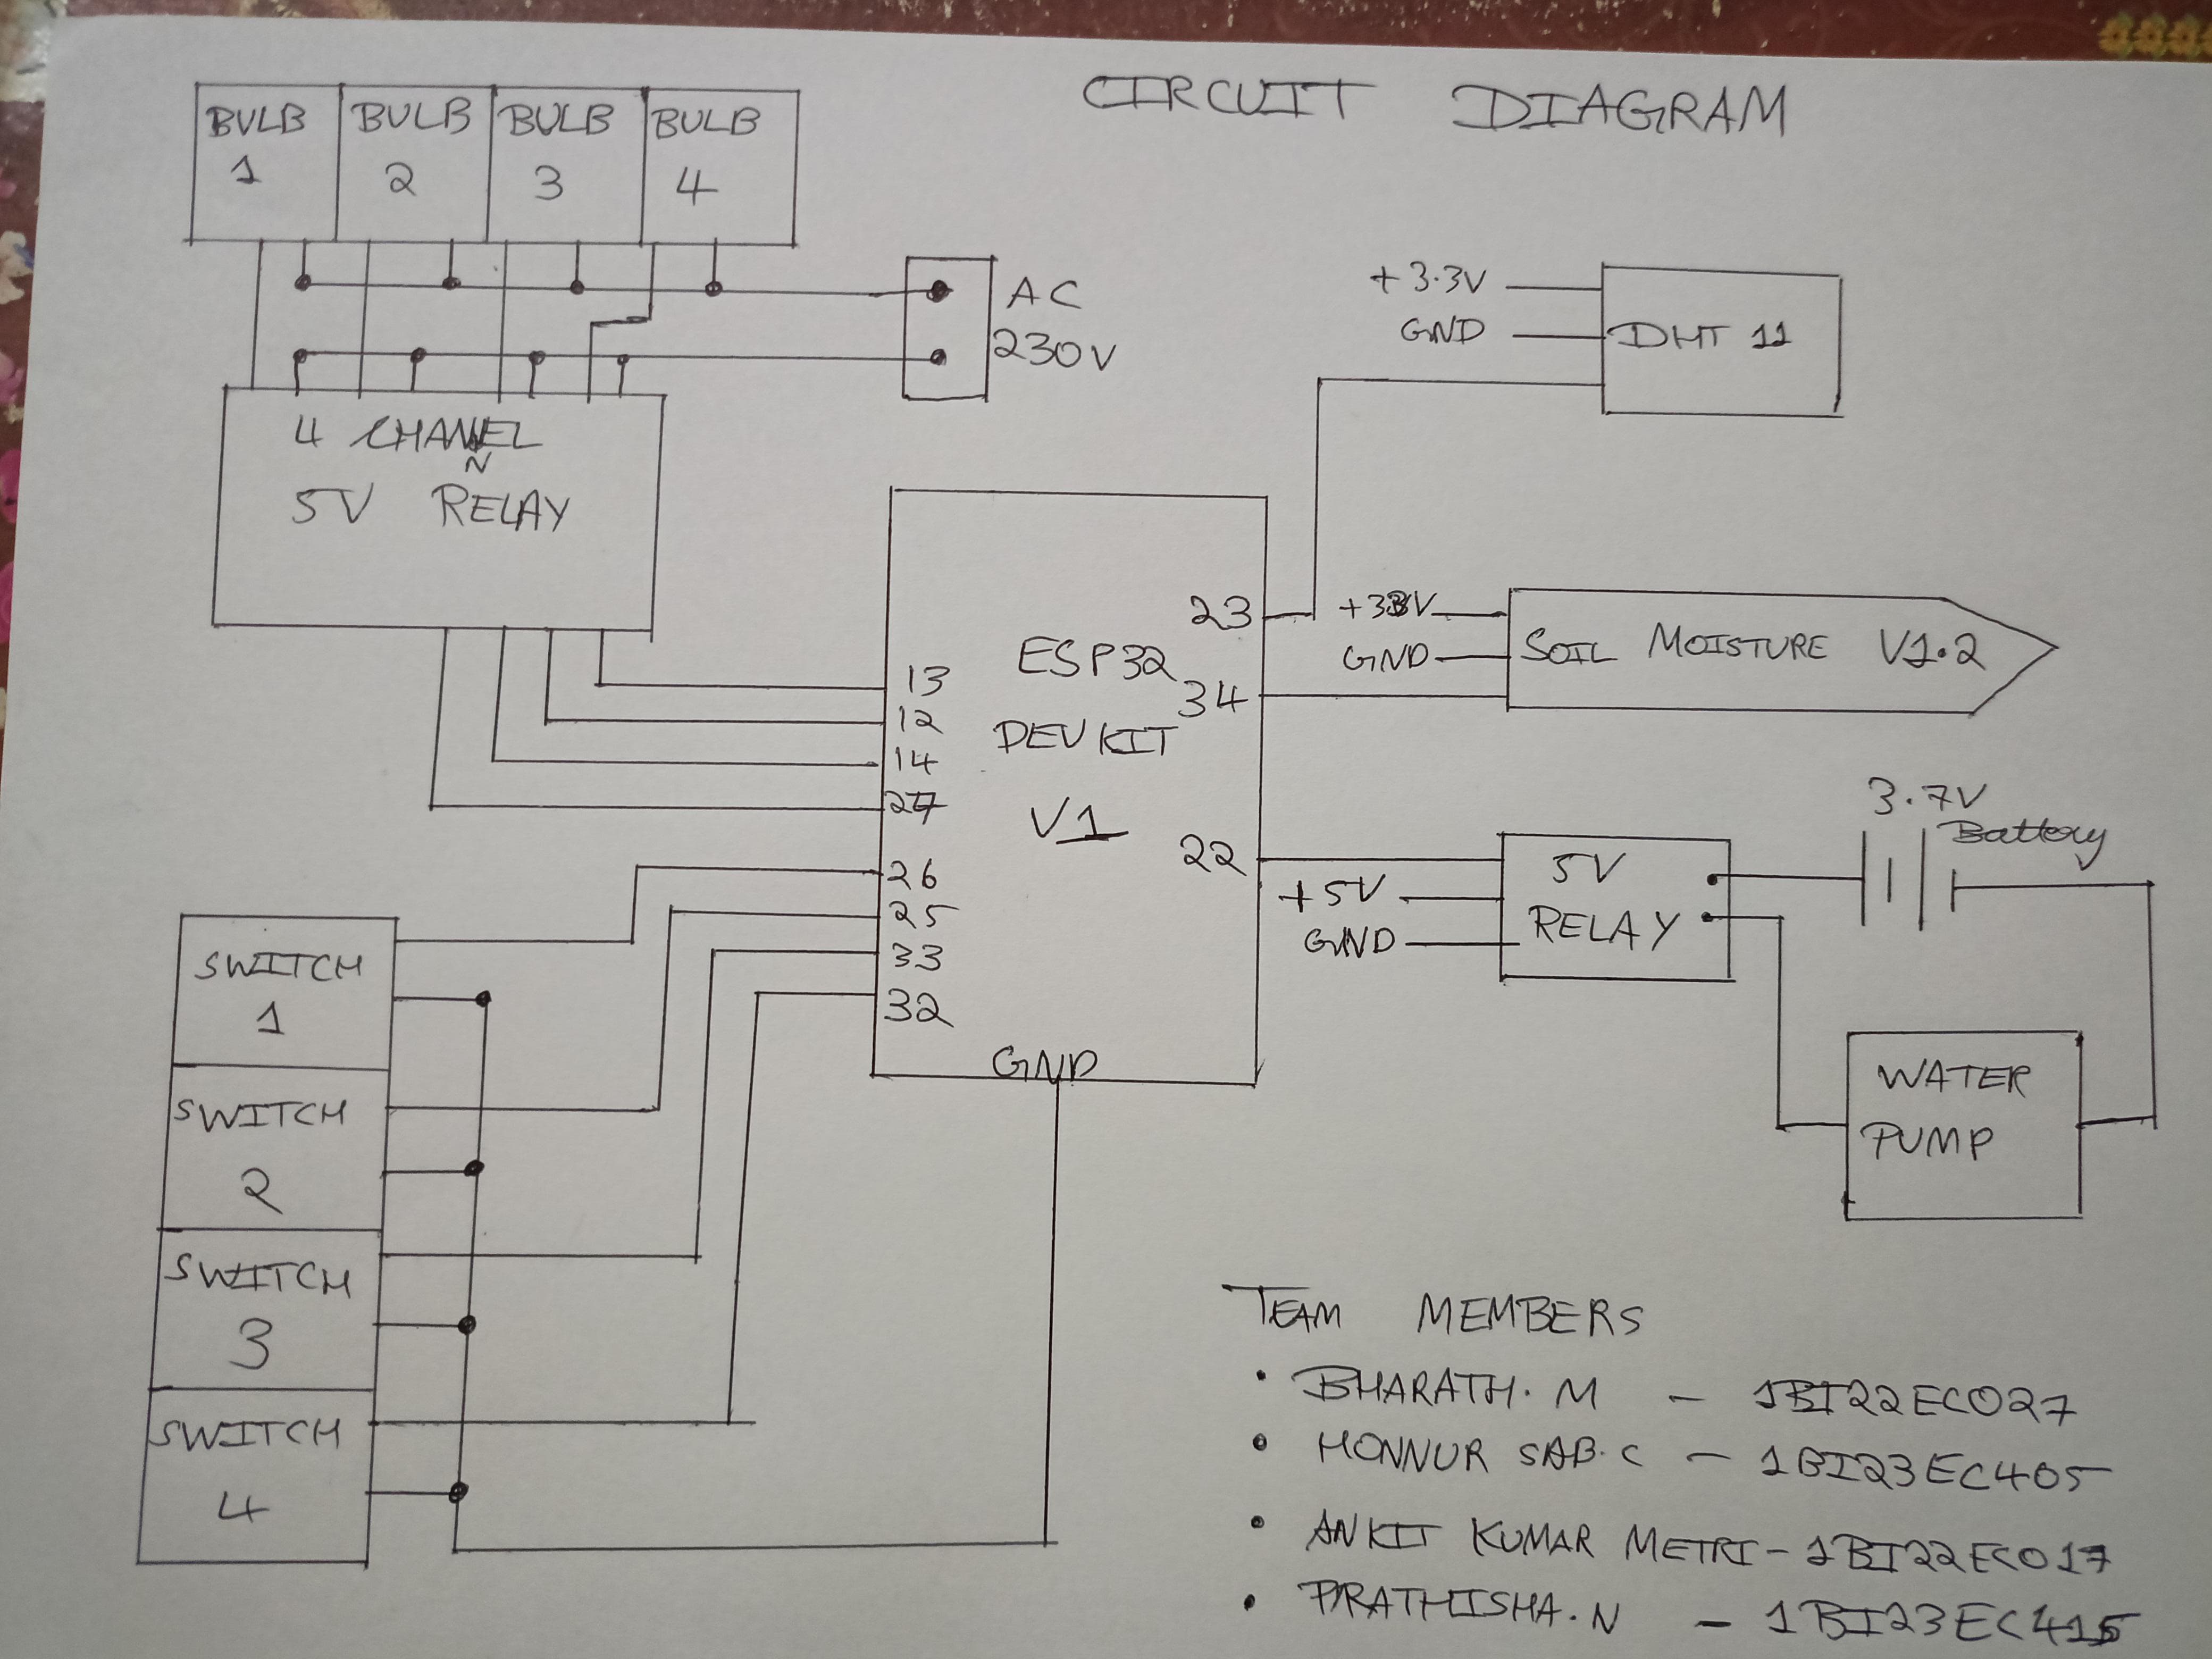 CIRCUIT DIAGRAM
BULB 1
BULB 2
BULB 3
BULB 4
AC
230V
4 CHANNEL
N
5V RELAY
+3.3V
GND
DHT 11
ESP32
DEVKIT
V1
13
12
14
27
26
25
33
32
GND
23
34
22
+3.3V
GND
SOIL MOISTURE V1.2
+5V
GND
5V
RELAY
3.7V
Battery
WATER
PUMP
SWITCH
1
SWITCH
2
SWITCH
3
SWITCH
4
TEAM MEMBERS
• BHARATH.M - 1BI22EC027
• HONNUR SAB.C - 1BI23EC405
• ANKIT KUMAR METRI - 1BI22EC017
• PRATHISHA.N - 1BI23EC415